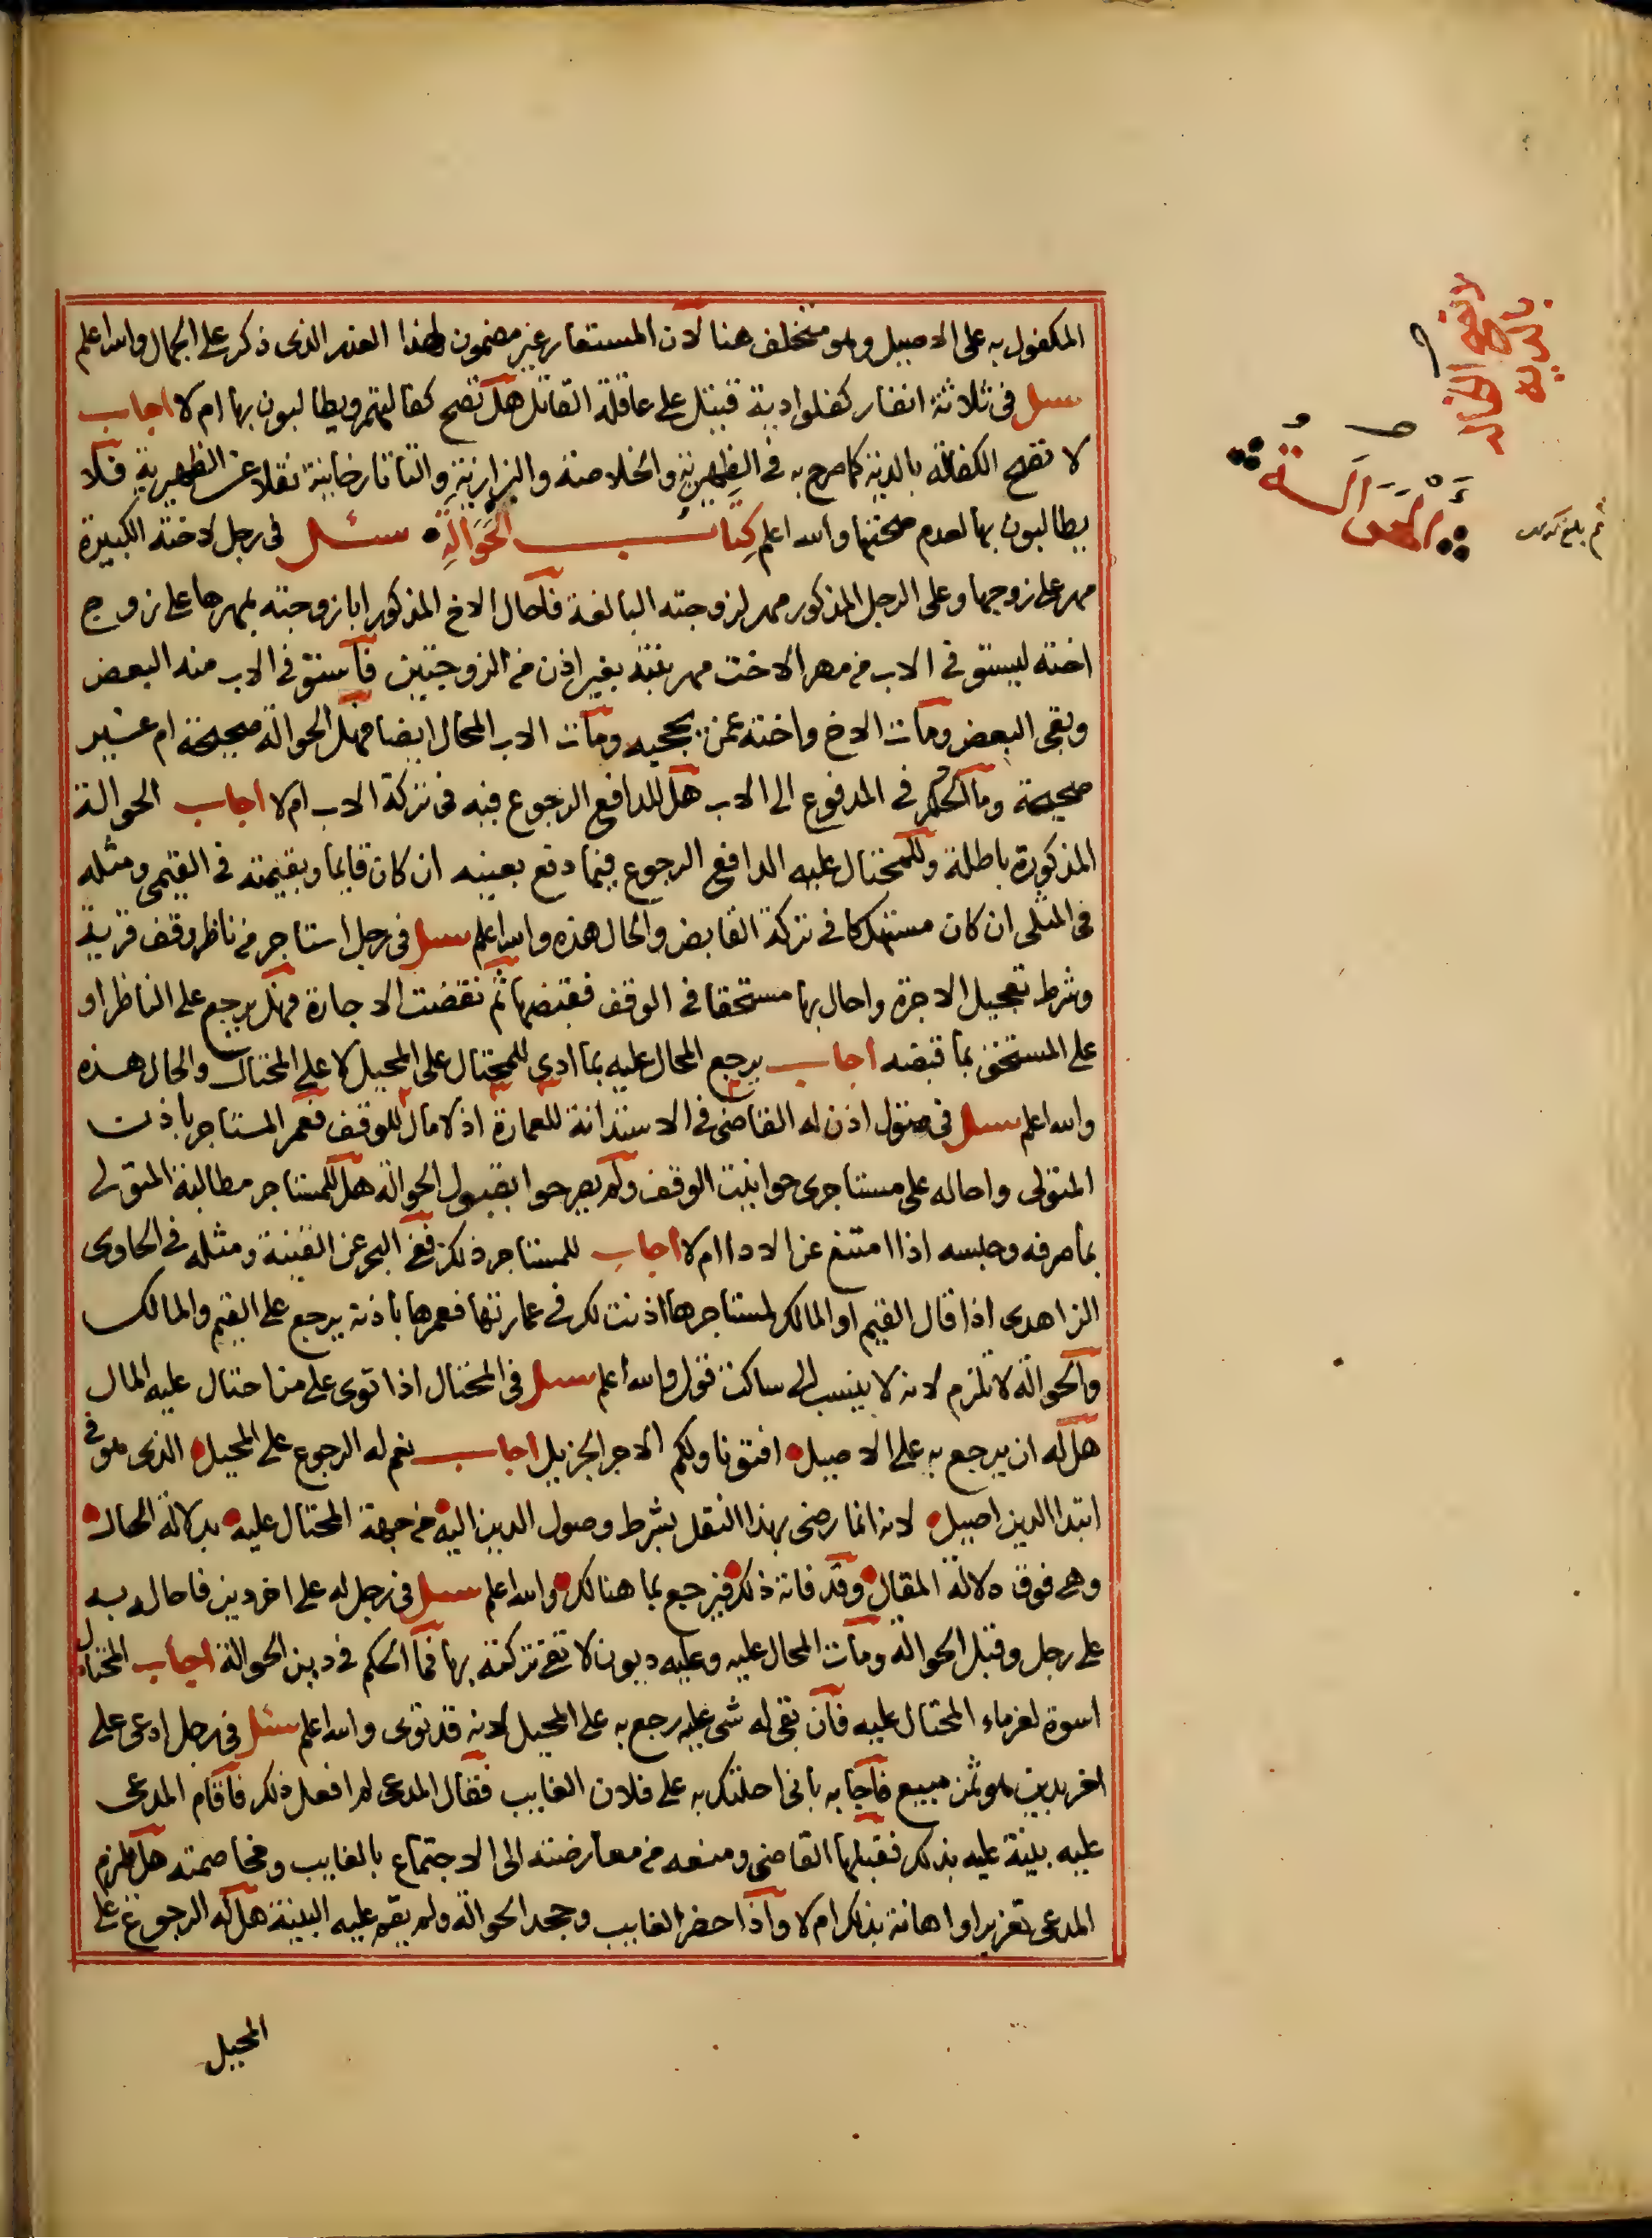 المكفول به على الاصيل وهو متخلف هنا لان المستعار غير مضمون لهذا القدر الذى ذكر على الجمال والله اعلم
سئل فى ثلاثة انفار كفلوا دية قتيل على عاقلة القاتل هل تصح كفالتهم ويطالبون بها ام لا اجاب
لا تصح الكفالة بالدية كما صرح به فى الظهيرية والخلاصة والبزازية والتاتارخانية نقلا عن الظهيرية فلا
يطالبون بها لعدم صحتها والله اعلم كتاب الحوالة سئل فى رجل لاخته الكبيرة
مهر على زوجها وعلى الرجل المذكور مهر لزوجته البالغة فاحال الاخ المذكور ابا زوجته بمهرها على زوج
اخته ليستوفى الاب من مهر الاخت مهر بنته بغير اذن من الزوجتين فاستوفى الاب منه البعض
وبقى البعض ومات الاخ واخته عمن يحجبه ومات الاب المحال ايضا فهل الحوالة صحيحة ام غير
صحيحة وما الحكم فى المدفوع الى الاب هل للدافع الرجوع فيه فى تركة الاب ام لا اجاب الحوالة
المذكورة باطلة وللمحتال عليه الدافع الرجوع فيما دفع بعينه ان كان قايما وبقيمته فى القيمى ومثله
فى المثلى ان كان مستهلكا فى تركة القابض والحال هذه والله اعلم سئل فى رجل استاجر من ناظر وقف قرية
وشرط تعجيل الاجرة واحال بها مستحقا فى الوقف فقبضها ثم نقضت الاجارة فهل يرجع على الناظر او
على المستحق بما قبضه اجاب يرجع المحال عليه بما ادى للمحتال على المحيل لا على المحتال والحال هذه
والله اعلم سئل فى متول اذن له القاضى فى الاستدانة للعمارة اذ لا مال للوقف فعمر المستاجر باذن
المتولى واحاله على مستاجرى حوانيت الوقف ولم يصرحوا بقبول الحوالة هل للمستاجر مطالبة المتولى
بما صرفه وحبسه اذا امتنع عن الادا ام لا اجاب للمستاجر ذلك ففى البحر عن القنية ومثله فى الحاوى
الزاهدى اذا قال القيم او المالك لمستاجرها اذنت لك فى عمارتها فعمرها باذنه يرجع على القيم والمالك
والحوالة لا تلزم لانه لا ينسب الى ساكت قول والله اعلم سئل فى المحتال اذا توى على من احتال عليه المال
هل له ان يرجع به على الاصيل افتونا ولكم الاجر الجزيل اجاب نعم له الرجوع على المحيل الذى هو فى
ابتدا الدين اصيل لانه انما رضى بهذا النقل بشرط وصول الدين اليه من جهة المحتال عليه بدلالة الحال
وهى فوق دلالة المقال وقد فاته ذلك فيرجع بما هنالك والله اعلم سئل فى رجل له على اخر دين فاحاله به
على رجل وقبل الحوالة ومات المحال عليه وعليه ديون لا تفى تركته بها فما الحكم فى دين الحوالة اجاب المحتال
اسوة لغرماء المحتال عليه فان بقى له شى عليه رجع به على المحيل لانه قد توى والله اعلم سئل فى رجل ادعى على
اخر بدين هو ثمن مبيع فاجابه بانى احلتك به على فلان الغايب فقال المدعى لم افعل ذلك فاقام المدعى
عليه بينة عليه بذلك فقبلها القاضى ومنعه من معارضته الى الاجتماع بالغايب ومخاصمته هل يلزم
المدعى تعزير او اهانة بذلك ام لا واذا حضر الغايب وجحد الحوالة ولم يقم عليه البينة هل له الرجوع على
المحيل
الحوالة
بالدية